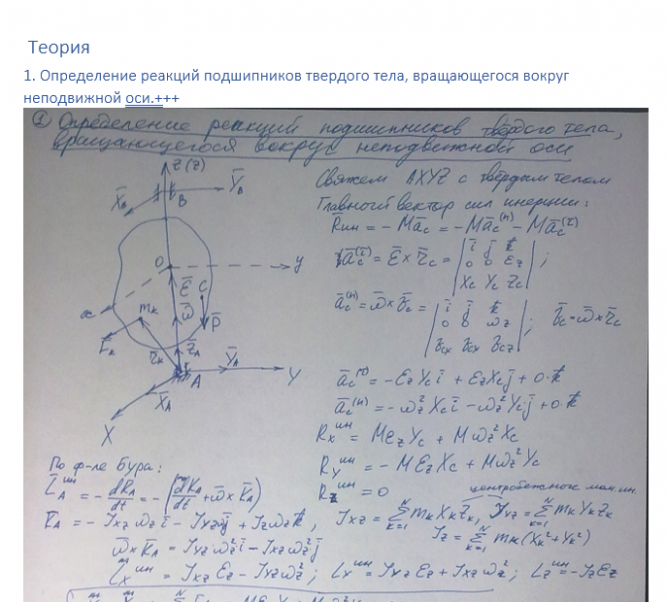 Теория
1. Определение реакций подшипников твердого тела, вращающегося вокруг
неподвижной оси.+++
① Определение реакций подшипников твёрдого тела,
вращающегося вокруг неподвижной оси
z (z)
X̄_B B Ȳ_B
O y
x m_K ε̄ C
ω̄ P̄
F̄_K r̄_K Z̄_A
Ȳ_A
X̄_A A Y
X
Свяжем AXYZ с твёрдым телом
Главный вектор сил инерции:
R̄ᵢₙ = − Mā_c = − Mā_c^(n) − Mā_c^(τ)
ā_c^(τ) = ε̄ × r̄_c = | ī j̄ k̄ |
| 0 0 ε_z | ;
| X_c Y_c Z_c |
ā_c^(n) = ω̄ × v̄_c = | ī j̄ k̄ |
| 0 0 ω_z | ; v̄_c = ω̄ × r̄_c
ā_c^(τ) = − ε_z Y_c ī + ε_z X_c j̄ + 0·k̄
ā_c^(n) = − ω_z² X_c ī − ω_z² Y_c j̄ + 0·k̄
R_X^ин = Mε_z Y_c + Mω_z² X_c
R_Y^ин = − Mε_z X_c + Mω_z² Y_c
R_z^ин = 0
По ф-ле Бура:
L̄_A^ин = − dK̄_A/dt = − (d̃K̄_A/dt + ω̄ × K̄_A)
K̄_A = − J_xz ω_z ī − J_yz ω_z j̄ + J_z ω_z k̄ ,
ω̄ × K̄_A = J_yz ω_z² ī − J_xz ω_z² j̄
центробежные мом. ин.
J_xz = Σ m_K X_K Z_K , J_yz = Σ m_K Y_K Z_K
J_z = Σ m_K (X_K² + Y_K²)
L_X^ин = J_xz ε_z − J_yz ω_z² ; L_Y^ин = J_yz ε_z + J_xz ω_z² ; L_z^ин = − J_z ε_z